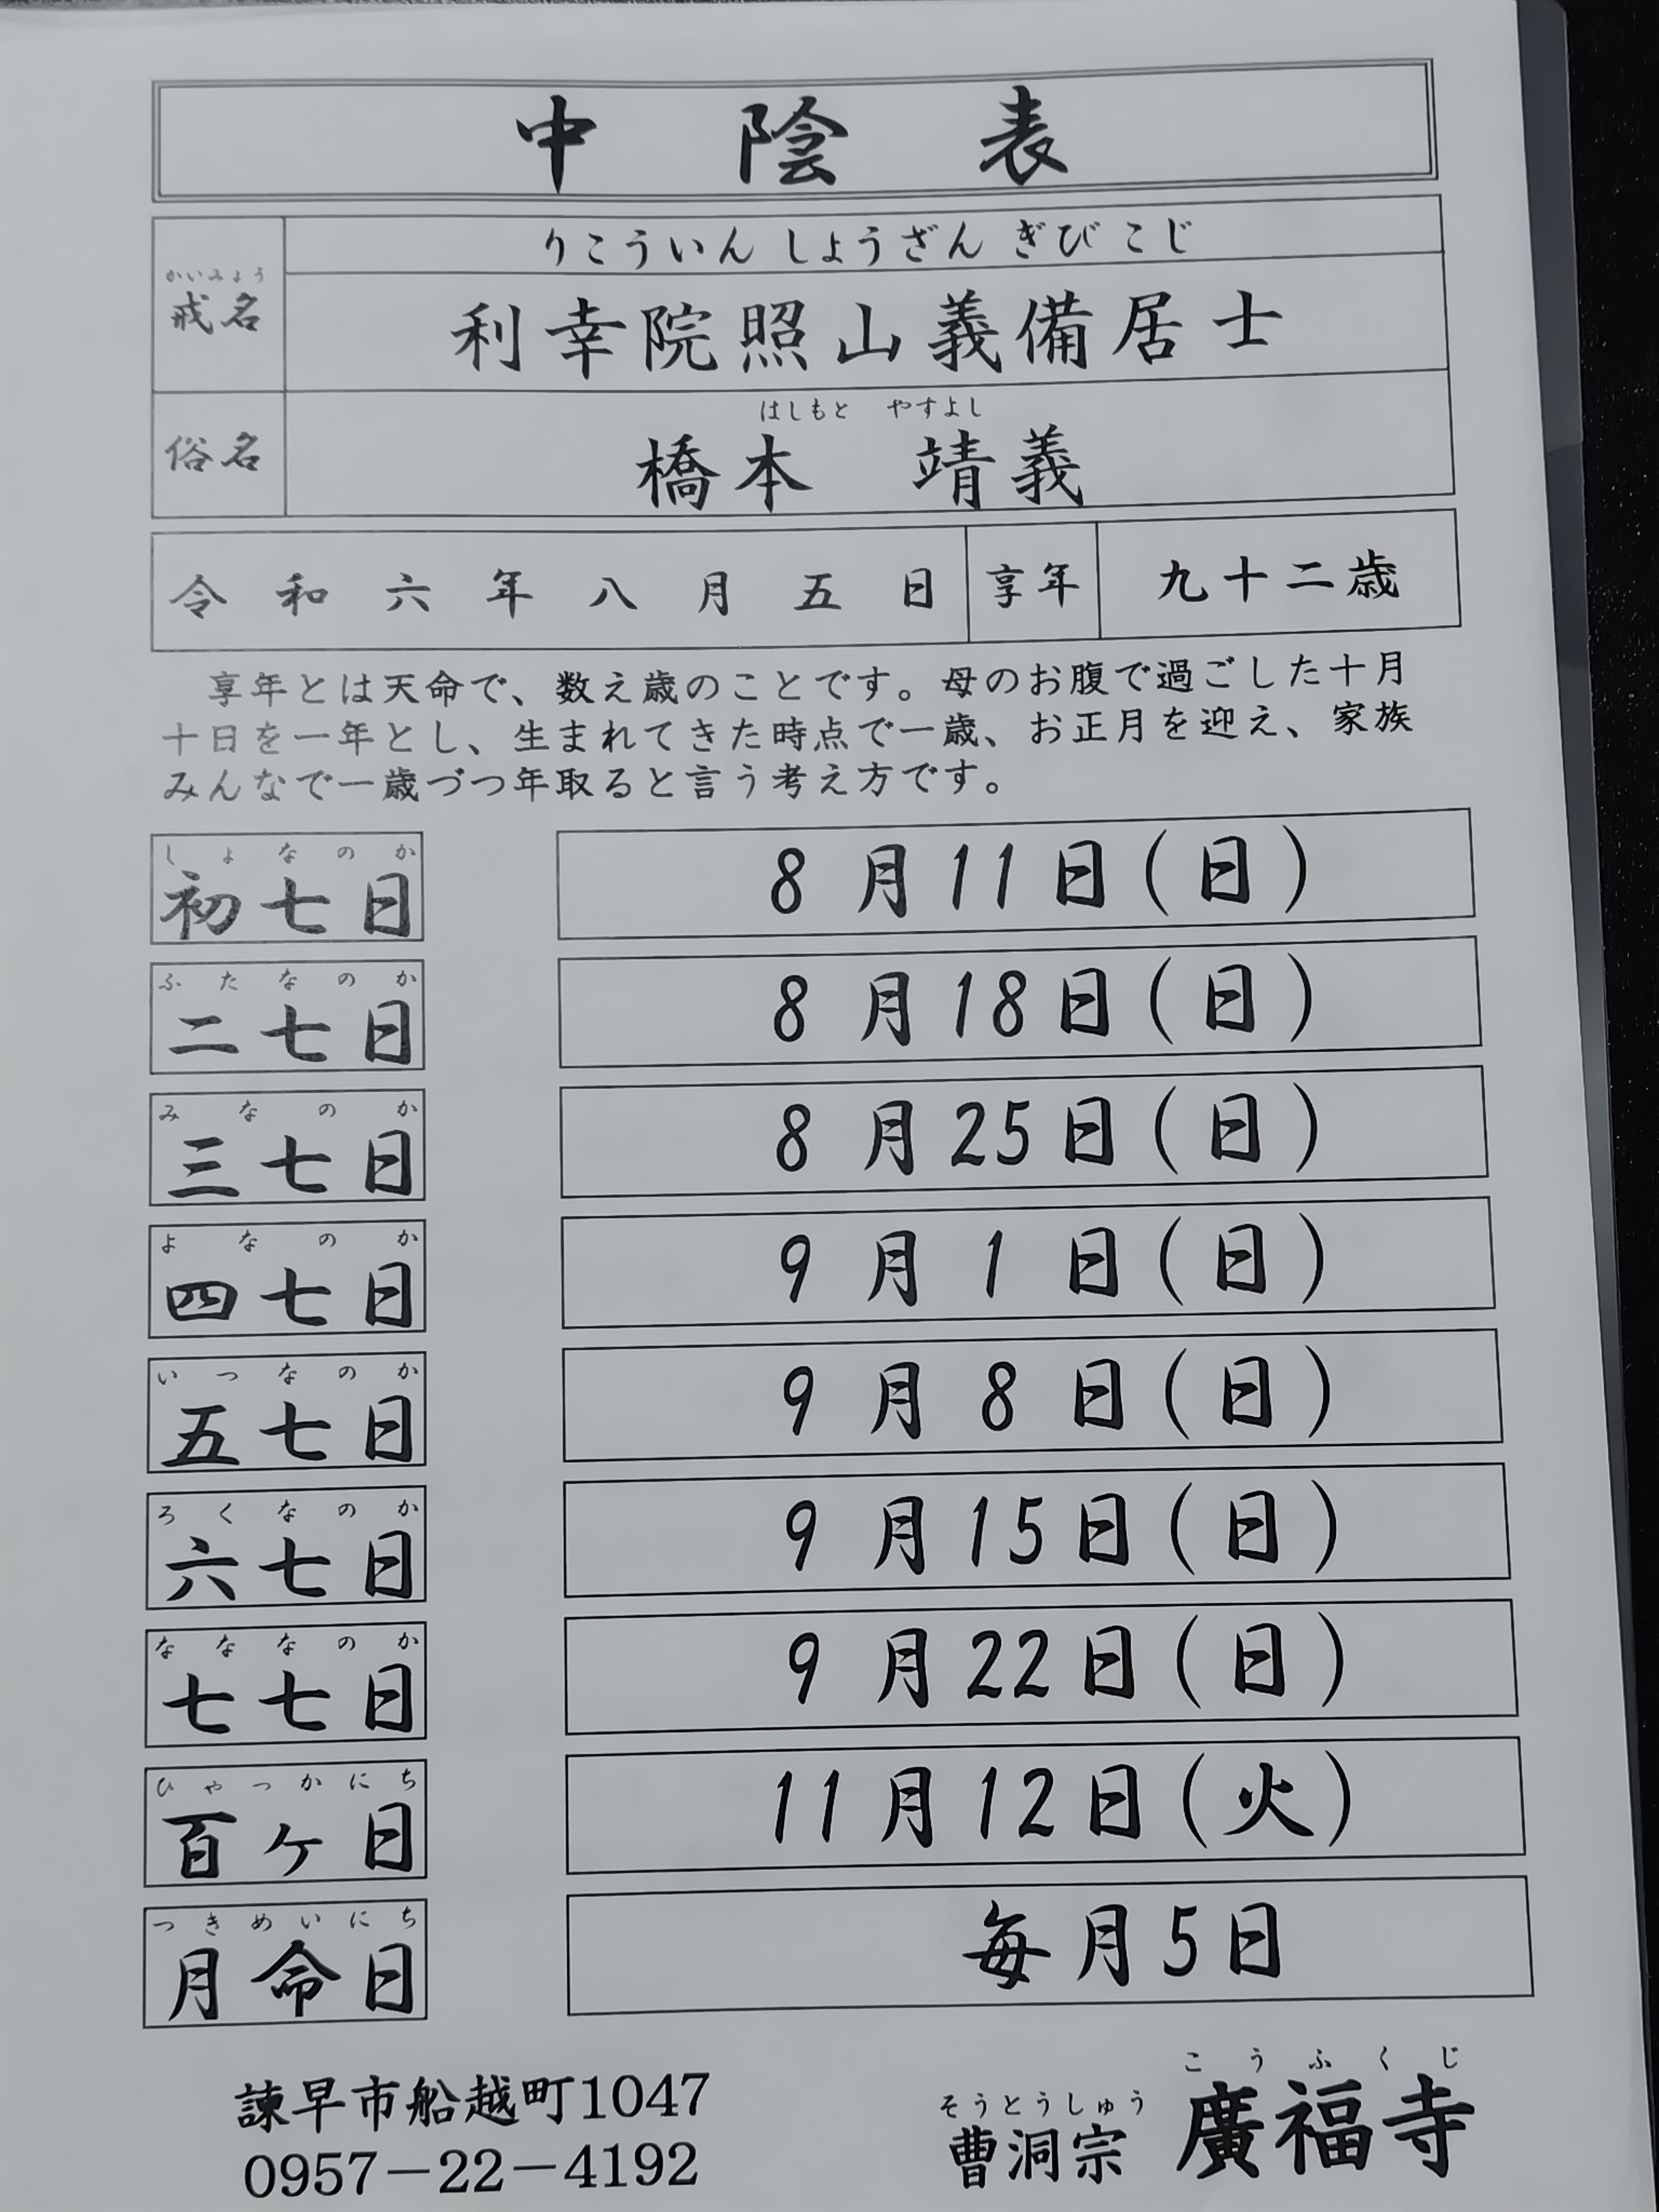 中陰表
りこういん しょうざん ぎび こじ
かいみょう
戒名
利幸院照山義備居士
はしもと やすよし
俗名
橋本 靖義
令和六年八月五日 享年 九十二歳
享年とは天命で、数え歳のことです。母のお腹で過ごした十月
十日を一年とし、生まれてきた時点で一歳、お正月を迎え、家族
みんなで一歳づつ年取ると言う考え方です。
しょなのか
初七日 8月11日(日)
ふたなのか
二七日 8月18日(日)
みなのか
三七日 8月25日(日)
よなのか
四七日 9月1日(日)
いつなのか
五七日 9月8日(日)
ろくなのか
六七日 9月15日(日)
なななのか
七七日 9月22日(日)
ひゃっかにち
百ヶ日 11月12日(火)
つきめいにち
月命日 毎月5日
諫早市船越町1047
0957-22-4192
そうとうしゅう こうふくじ
曹洞宗 廣福寺